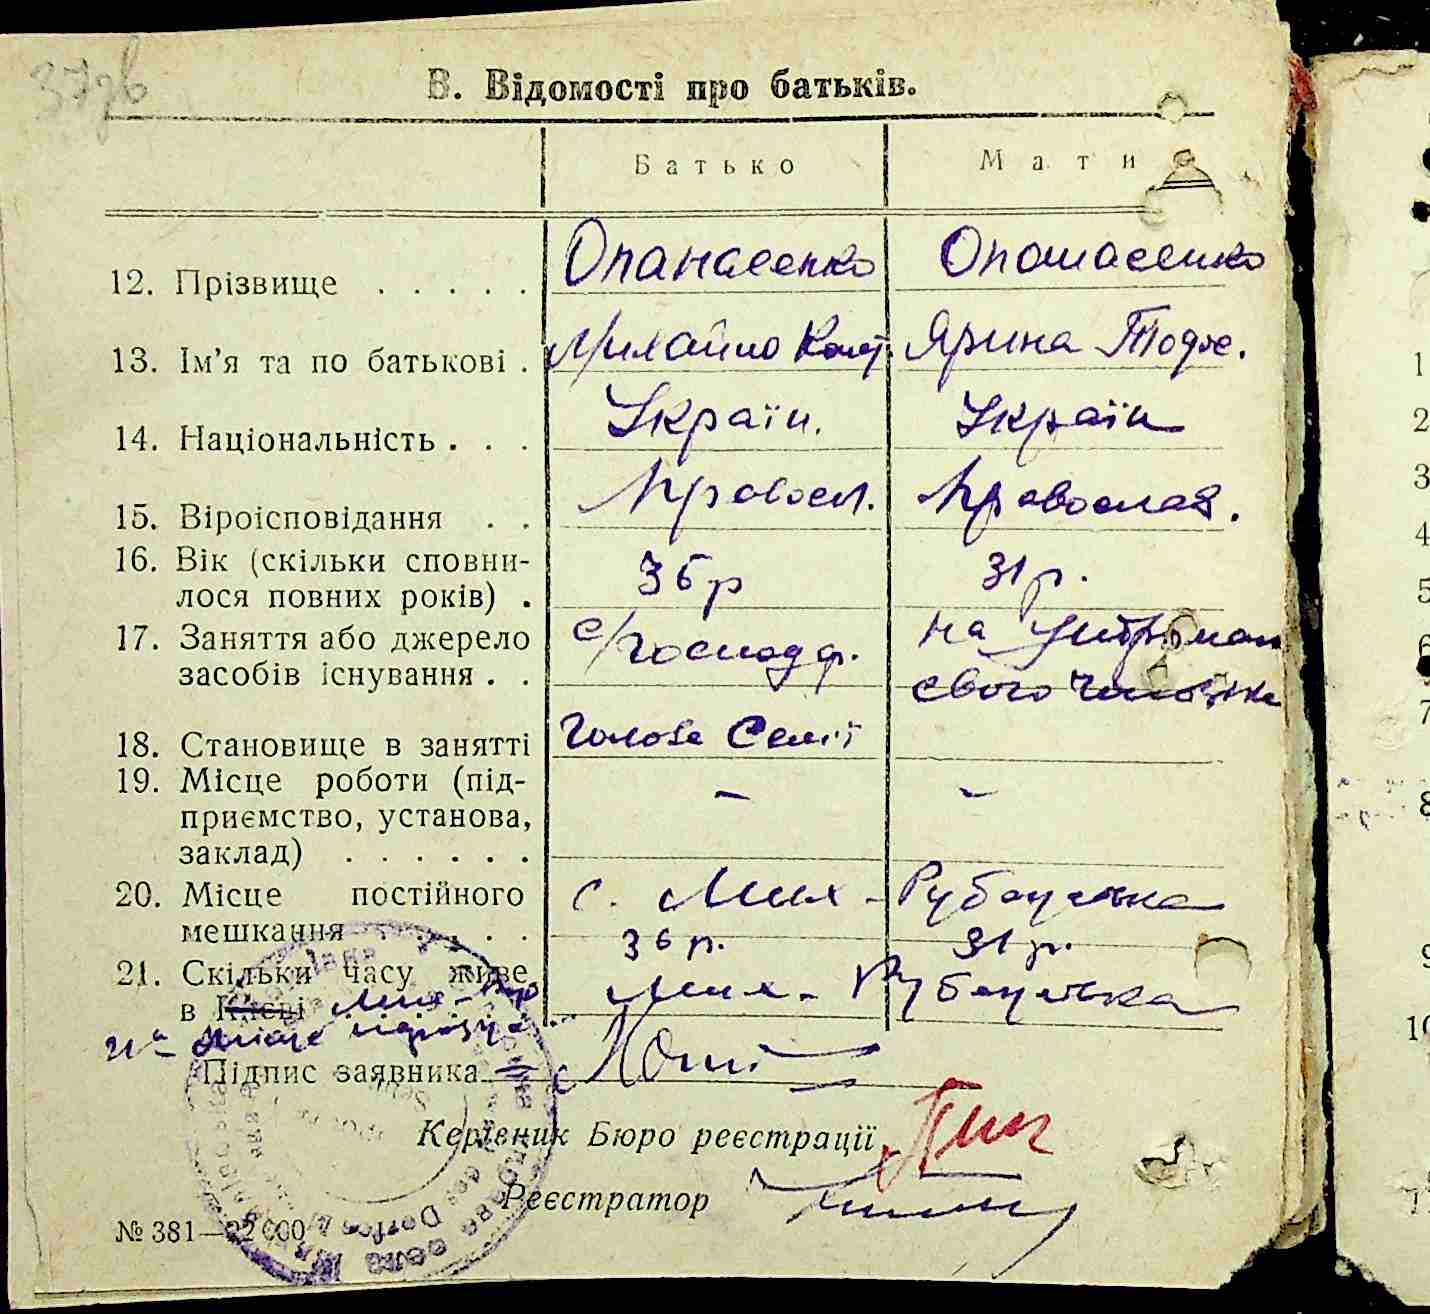 В. Відомості про батьків.
Батько Мати
12. Прізвище . . . . . Опанасенко Опанасенко
13. Ім'я та по батькові . Михайло Ярина Тодос.
14. Національність . . . Україн. Україн
15. Віроісповідання . . Правосл. Православ.
16. Вік (скільки сповни-
лося повних років) . 36 р 31 р.
17. Заняття або джерело с/господар. на утриман
засобів існування . . свого чоловіка
18. Становище в занятті Голова Семії
19. Місце роботи (під- – –
приємство, установа,
заклад) . . . . . .
20. Місце постійного с. Мих - Рубанівка
мешкання . . . . . 36 р. 31 р.
21. Скільки часу живе
в Києві Мих - Руб Мих - Рубанівка
Підпис заявника
Керівник Бюро реєстрації
Реєстратор
№ 381—22 000